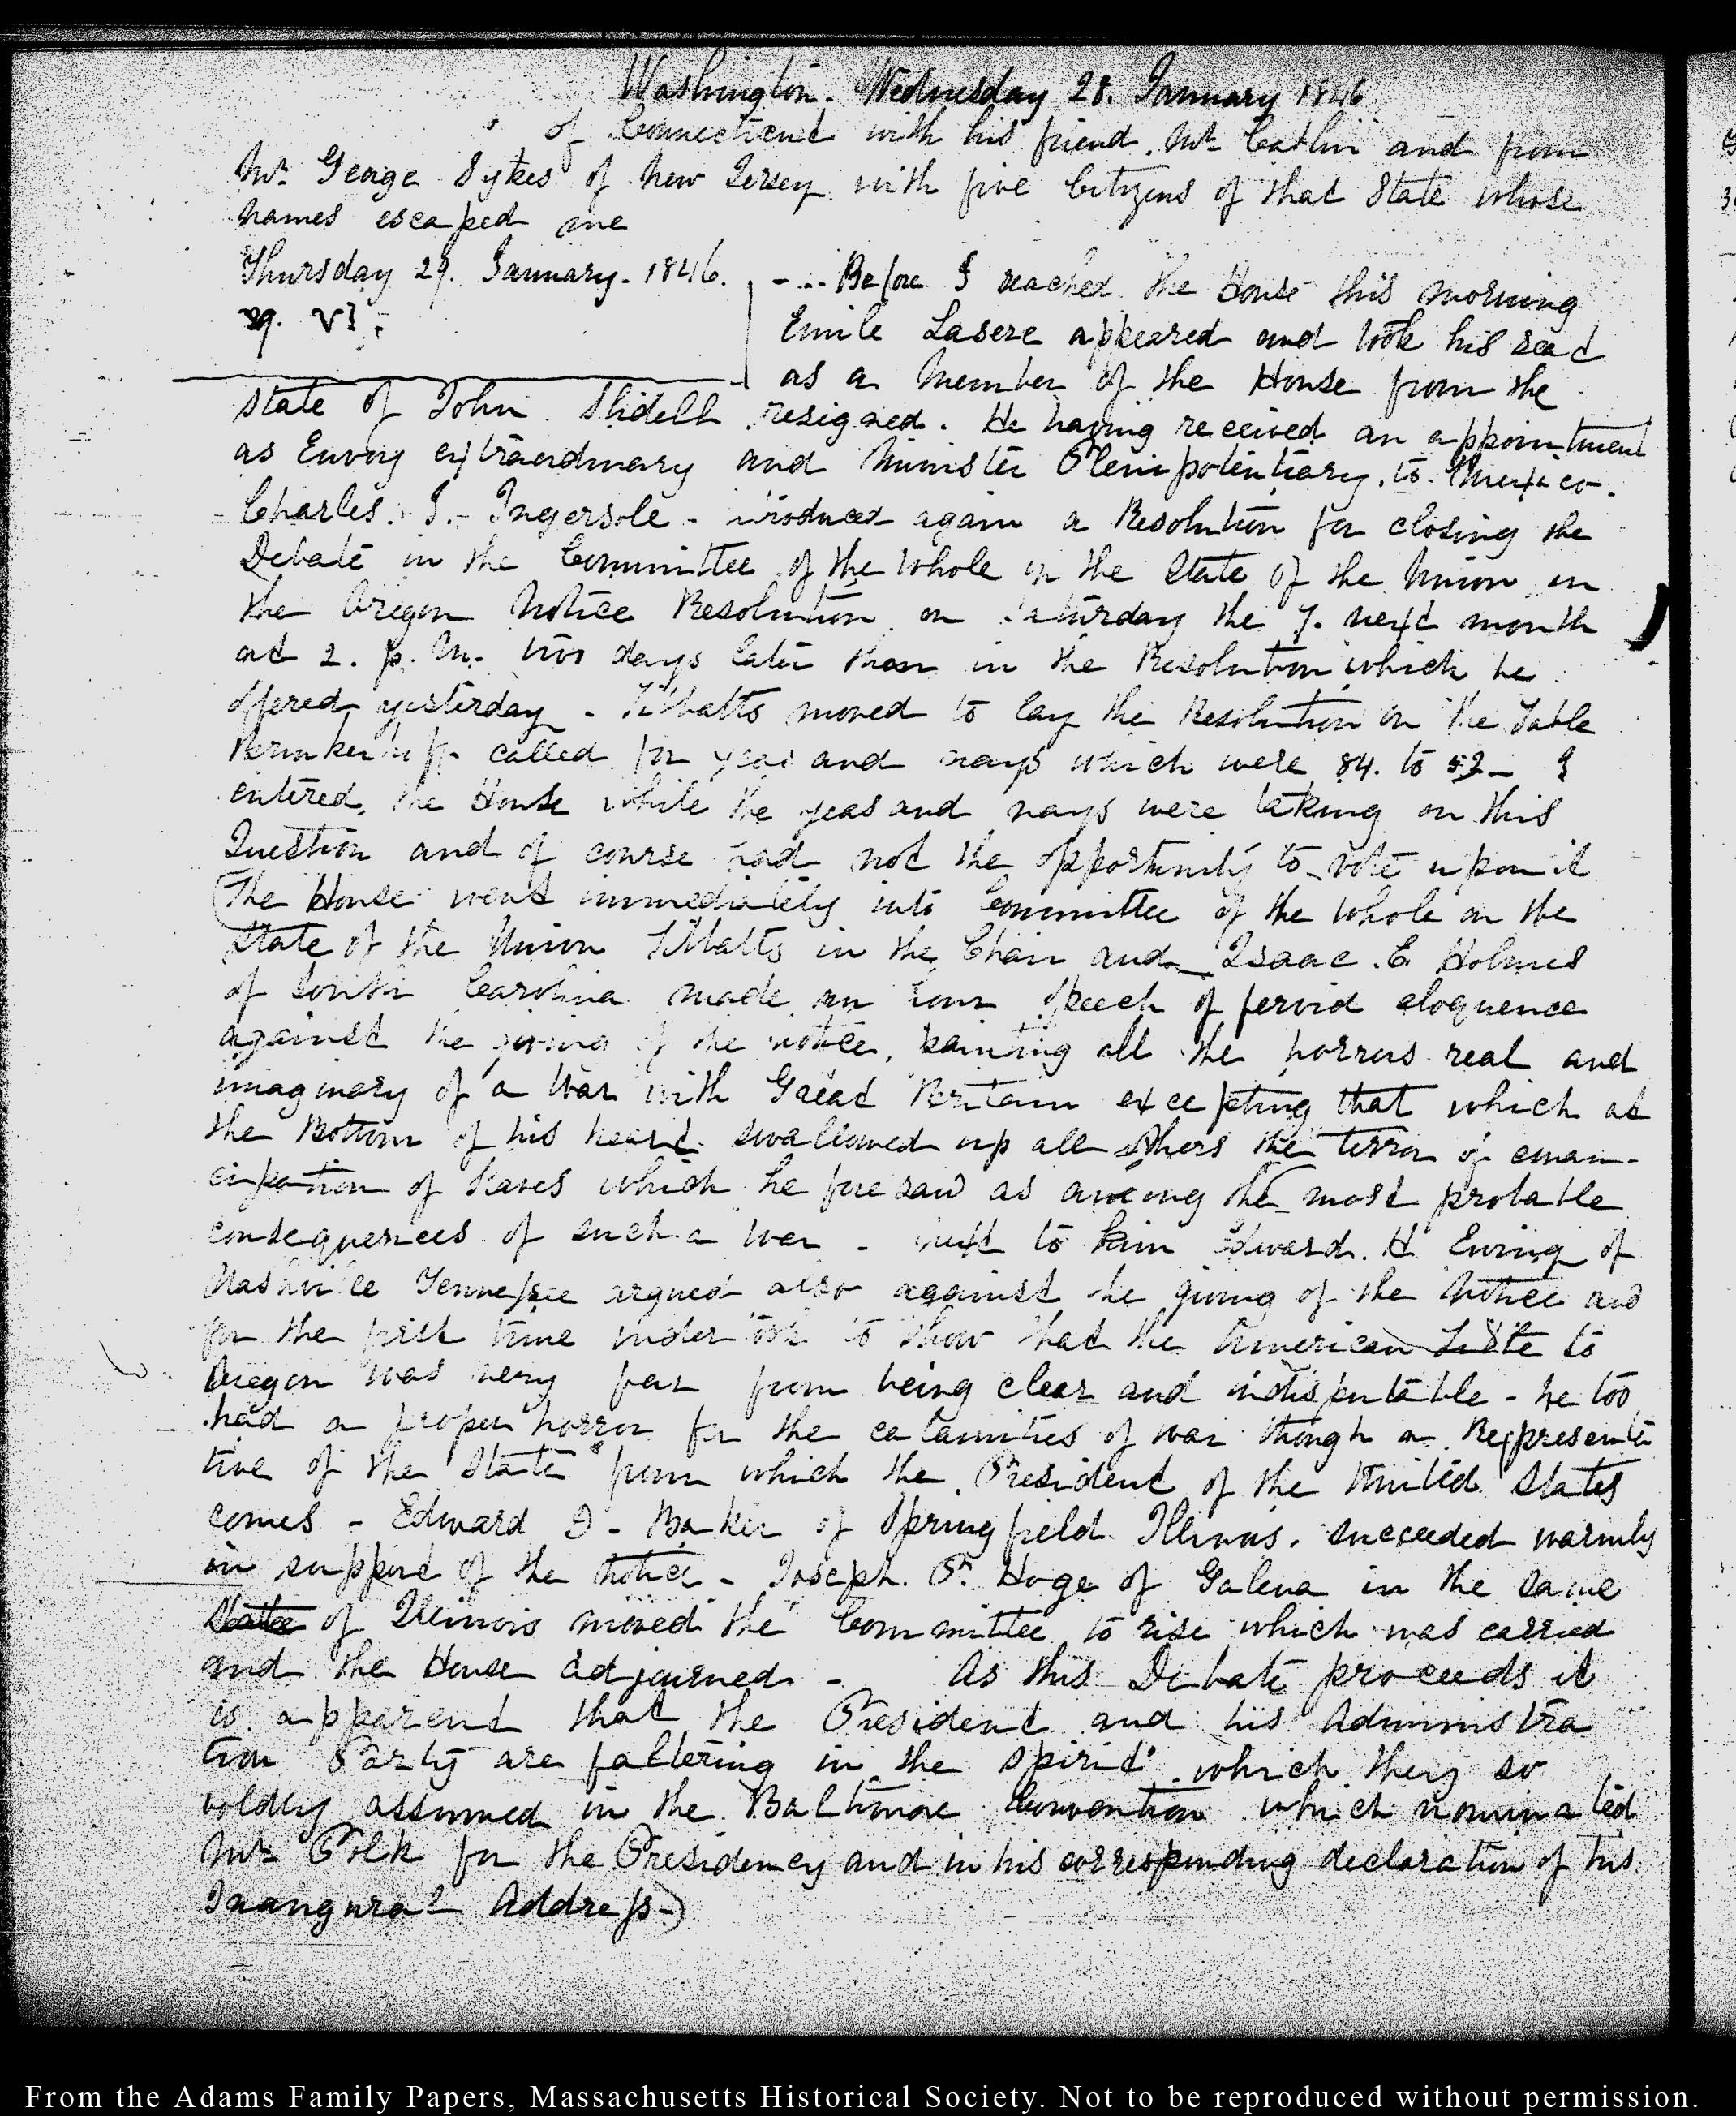 Washington. Wednesday 28. January 1846
of Connecticut with his friend. Mr. Catlin and from
Mr. George Sykes of New Jersey with five Citizens of that State whose
names escaped me
Thursday 29. January. 1846.
29. VI.
- ... Before I reached the House this morning
Emile Lasere appeared and took his seat
as a Member of the House from the
State of John Slidell resigned. He having received an appointment
as Envoy extraordinary and Minister Plenipotentiary. to. Mexico.
Charles. J. Ingersole - again a Resolution for closing the
Debate in the Committee of the Whole on the State of the Union on
the Oregon Notice Resolution on Saturday the 7. next month
at 2. p. m. two days later than in the Resolution which he
offered yesterday - Tibbatts moved to lay the Resolution on the Table
Brinkerhoff called for yeas and nays which were 84. to 52 - I
entered, the House while the yeas and nays were taking on this
Question and of course had not the opportunity to vote upon it
(The House went immediately into Committee of the Whole on the
State of the Union Tibbatts in the Chair and Isaac. E. Holmes
of South Carolina made an hour speech of fervid eloquence
against the giving of the notice, painting all the horrors real and
imaginary of a War with Great Britain excepting that which at
the Bottom of his heart swallowed up all others the terror of eman-
cipation of slaves which he foresaw as among the most probable
consequences of such a war - next to him Edward. H Ewing of
Nashville Tennessee argued also against the giving of the Notice and
for the first time undertook to show that the American Title to
Oregon was very far from being clear and indisputable - he too
had a proper horror for the calamities of war though a Representa
tive of the State from which the President of the United States
comes - Edward D - Baker of Springfield Illinois. succeeded warmly
in support of the notice - Joseph. P. Hoge of Galena in the same
State of Illinois moved the Committee to rise which was carried
and the House adjourned - As this Debate proceeds it
is apparent that the President and his Administra
tion Party are faltering in the spirit which they so
boldly assumed in the Baltimore Convention which nominated
Mr. Polk for the Presidency and in his corresponding declaration of his
Inaugural Address -)
From the Adams Family Papers, Massachusetts Historical Society. Not to be reproduced without permission.